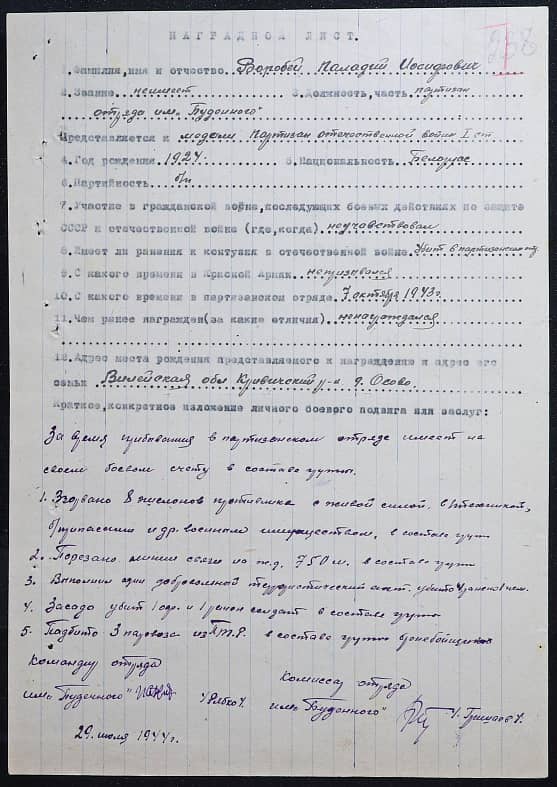 НАГРАДНОЙ ЛИСТ.
268
1. Фамилия, имя и отчество Воробей Паладий Иосифович
2. Звание неимеет 3. Должность, часть партизан
отряда им. "Буденного"
Представляется к медали Партизан отечественной войны I ст
4. Год рождения 1924. 5. Национальность Белорус
6. Партийность б/п
7. Участие в гражданской войне, последующих боевых действиях по защите
СССР и отечественной войне (где, когда) неучавствовал
8. Имеет ли ранения и контузии в отечественной войне. Убит в партизанском
9. С какого времени в Красной Армии непризвался
10. С какого времени в партизанском отряде. 7 октября 1943 г.
11. Чем ранее награжден (за какие отличия) ненаграждался
12. Адрес места рождения представляемого к награждению и адрес его
семьи Вилейская обл Кривичский р-н д. Осово
Краткое, конкретное изложение личного боевого подвига или заслуг:
За время прибывания в партизанском отряде имеет на
своем боевом счету в составе групп.
1. Взорвано 8 эшелонов противника с живой силой, в/техникой,
б/припасами и др. военным имуществом, в составе групп
2. Порезано линии связи по ж.д. 750 м. в составе групп
3. Выполнил один добровольный террористический акт. убито 4 ранено 1 чел.
4. Засада убит 1 оф. и 1 ранен солдат в составе группы
5. Подбито 3 паровоза из ПТР. в составе группы бронебойщиков
Командир отряда
им. "Буденного" /Рябко/.
Комиссар отряда
им. "Буденного"
29 июля 1944 г.